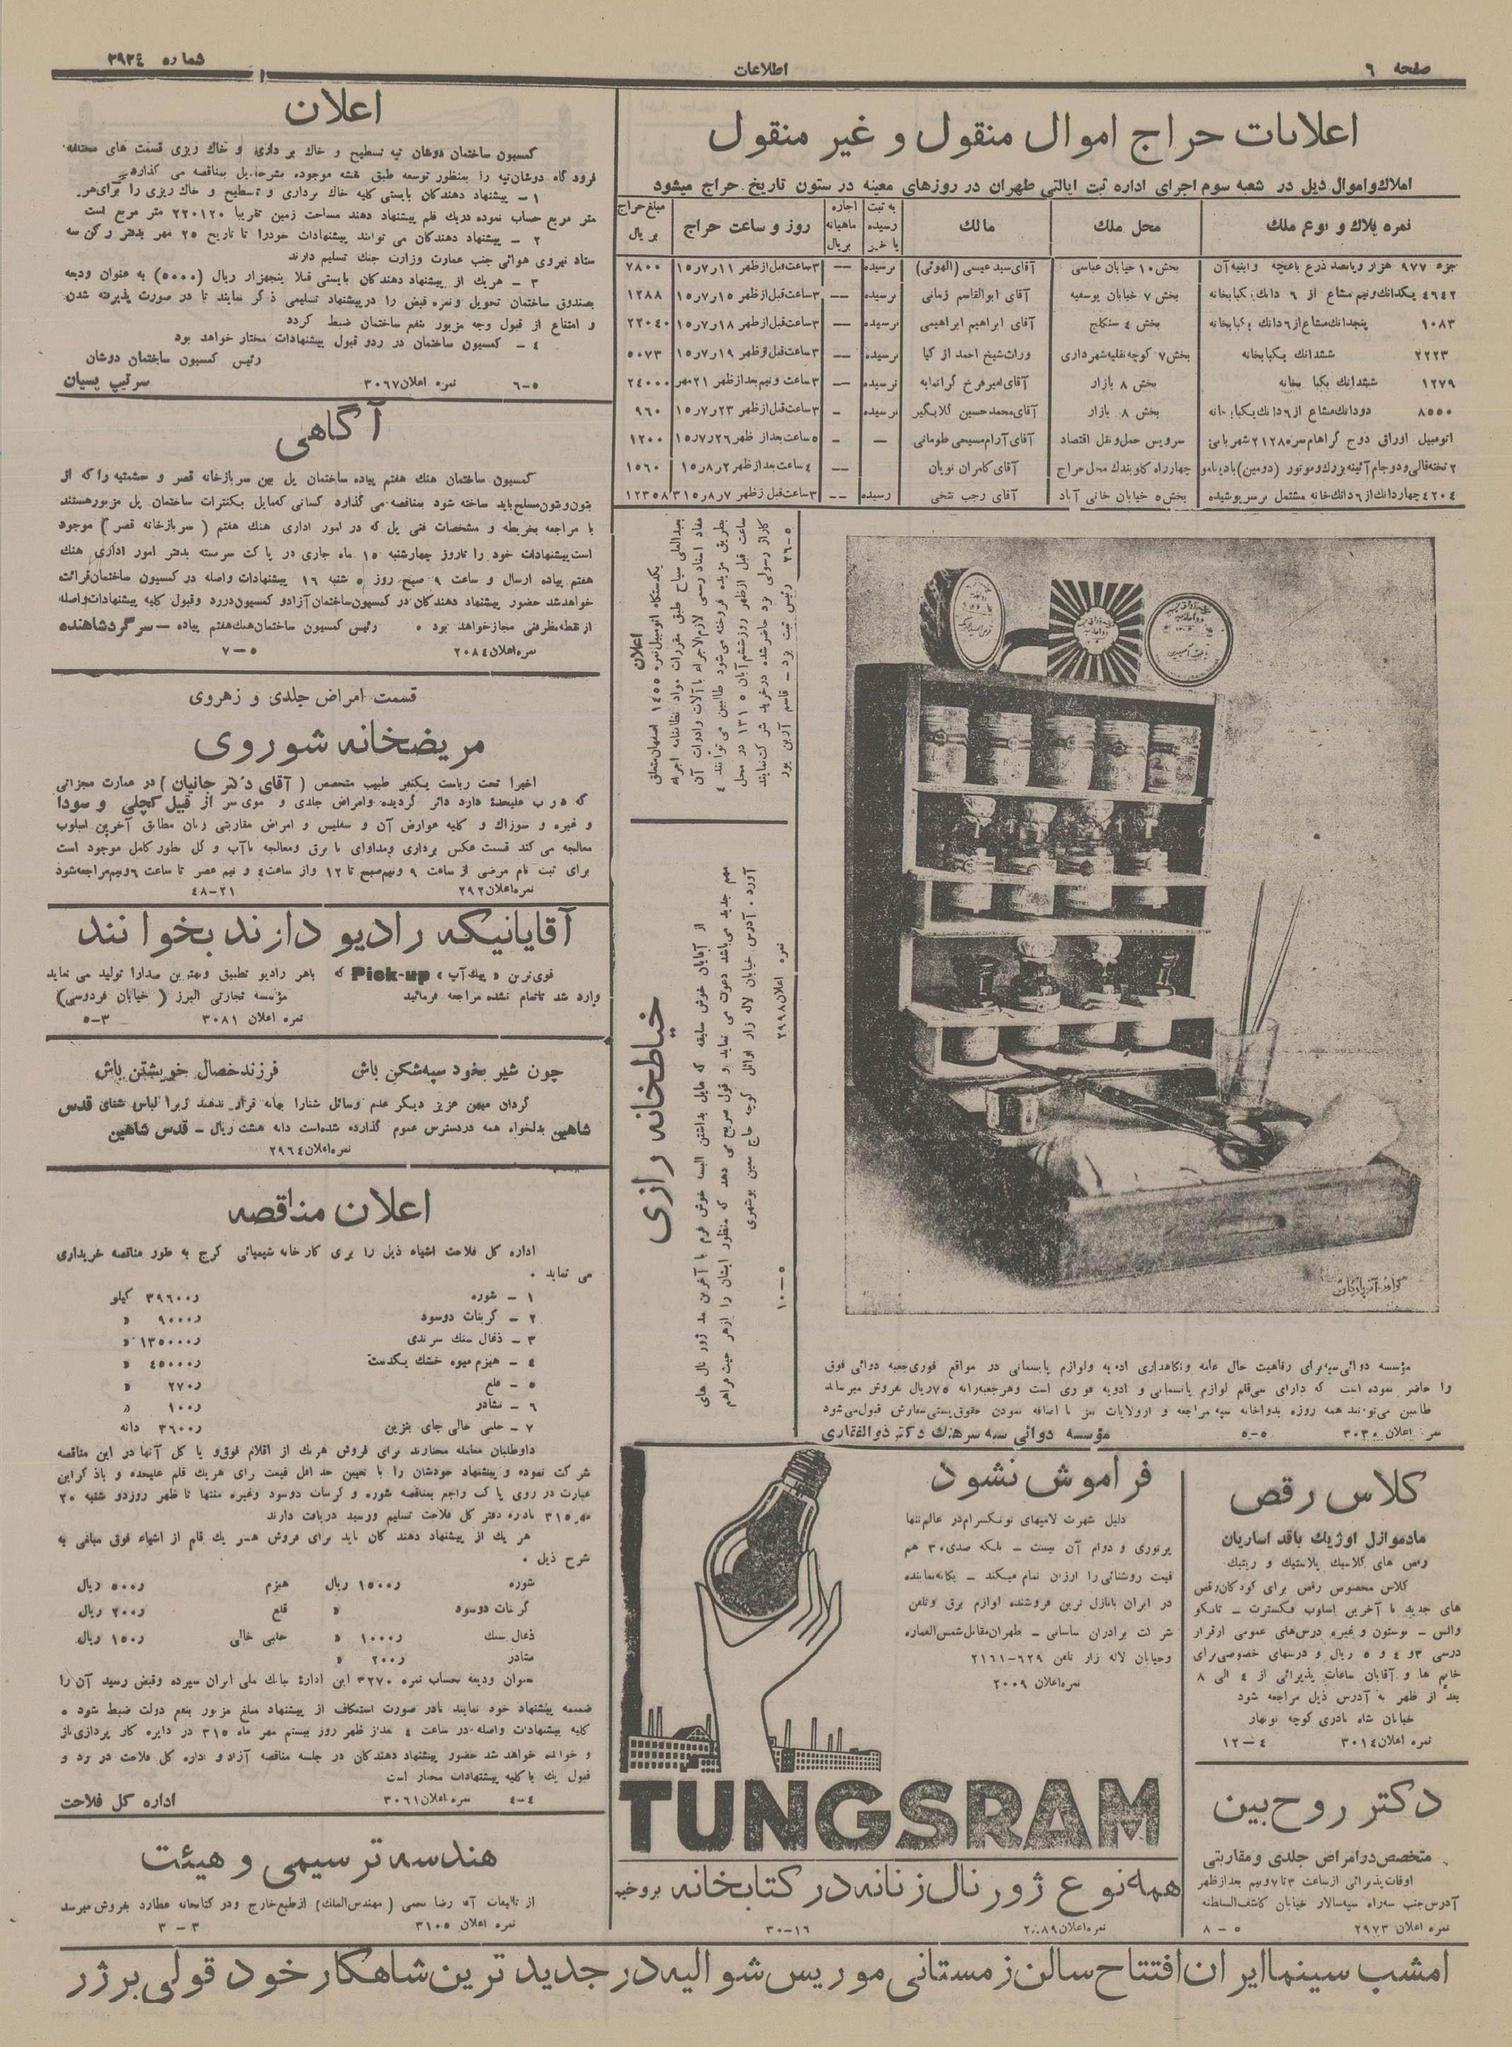 صفحه ۶
اطلاعات
شماره ۲۹۲٤
اعلانات حراج اموال منقول و غیر منقول
املاك واموال ذیل در شعبه سوم اجرای اداره ثبت ایالتی طهران در روزهای معینه در ستون تاریخ حراج میشود
نمره پلاك و نوع ملك | محل ملك | مالك | به ثبت رسیده یا خیر | اجاره ماهیانه بریال | روز و ساعت حراج | مبلغ حراج بریال
جزء ۹۷۷ هزار و پانصد ذرع باغچه وابنیه آن | بخش ۱۰ خیابان عباسی | آقای سید عیسی (الهوئی) | نرسیده | — | ۳ ساعت قبل از ظهر ۱۱ر۷ر۱۵ | ۷۸۰۰
٤٦٤٢ یکدانك ونیم مشاع از ۶ دانك یکبابخانه | بخش ۷ خیابان یوسفیه | آقای ابوالقاسم زمانی | نرسیده | — | ۳ ساعت قبل از ظهر ۱۵ر۷ر۱۵ | ۱۲۸۸
۱۰۸۳ پنجدانك مشاع از ۶ دانك یکبابخانه | بخش ٤ سنگلج | آقای ابراهیم ابراهیمی | نرسیده | — | ۳ ساعت قبل از ظهر ۱۸ر۷ر۱۵ | ۲۲۰٤۰
۲۲۲۳ ششدانك یکبابخانه | بخش ۷ کوچه نقلیه شهرداری | وراث شیخ احمد از کیا | نرسیده | — | ۳ ساعت قبل از ظهر ۱۹ر۷ر۱۵ | ۵۰۷۳
۱۲۷۹ ششدانك یکبابخانه | بخش ۸ بازار | آقای امیر فرخ گرانمایه | نرسیده | — | ۳ ساعت و نیم بعد از ظهر ۲۱ مهر | ۲٤۰۰۰
۸۵۵۰ دودانك مشاع از ۶ دانك یکبابخانه | بخش ۸ بازار | آقای محمد حسین گلابگیر | نرسیده | - | ۳ ساعت قبل از ظهر ۲۳ر۷ر۱۵ | ۹۶۰
اتومبیل اوراق دوج گراهام نمره ۲۱۲۸ شهربانی | سرویس حمل ونقل اقتصاد | آقای آرام مسیحی طومانی | — | - | ۵ ساعت بعد از ظهر ۲۶ر۷ر۱۵ | ۱۲۰۰
۲ تخته قالی ودوجام آئینه بزرك وموتور (دومین) بادینامو | چهارراه کاوبندك محل حراج | آقای کامران نویان | | — | ٤ ساعت بعد از ظهر ۲ر۸ر۱۵ | ۱۵۶۰
٤۲۰٤ چهاردانك از ۶ دانك خانه مشتمل برسرپوشیده | بخش ۵ خیابان خانی آباد | آقای رجب نتخی | رسیده | — | ۳ ساعت قبل از ظهر ۷ر۸ر۳۱۵ | ۱۲۳۵۸
اعلان
یکدستگاه اتومبیل نمره ۱٤۵۵ اصفهان متعلق
بعبدالعلی سیاح طبق مقررات مواد نظامنامه اجراء
مفاد اسناد رسمی لازم الاجراء با آلات وادوات آن
بطریق مزیده فروخته می‌شود طالبین می‌توانند ٤
ساعت قبل ازظهر روز ششم آبان ۱۳۱۵ در محل
گاراژ رسولی یزد حاضر شده درخرید شرکت نمایند
۲۶-۵ رئیس ثبت یزد - قاسم آرین پور
خیاطخانه رازی
از آقایان خوش سلیقه که مایل بداشتن البسه خوش فرم با آخرین مد ژورنال های
مهم جدید می‌باشد دعوت می نماید و قول صریح می دهد که منظور ایشان را ازهر حیث فراهم
آورد. آدرس خیابان لاله زار اوائل کوچه حاج معین بوشهری
نمره اعلان ۲۹۹۸ ۱۰-۵
مؤسسه دوائی سپه برای رفاهیت حال عامه ونگاهداری ادویه ولوازم پانسمانی در مواقع فوری جعبه دوائی فوق
را حاضر نموده است که دارای سی قلم لوازم پانسمانی و ادویه فوری است وهرجعبه رابه ۷۵ ریال بفروش میرساند
طالبین می‌توانند همه روزه بدواخانه سپه مراجعه و ازولایات نیز با اضافه نمودن حقوق پستی سفارش قبول می‌شود
نمره اعلان ۳۰۳۰ ۵-۵ مؤسسه دوائی سپه سرهنك دکتر ذوالفقاری
کلاس رقص
مادموازل اوژنیك باقداساریان
رقص های کلاسیك پلاستیك و ریتمیك
کلاس مخصوص رقص برای کودکان رقص
های جدید با آخرین اسلوب فکسترت - تانگو
والس - بوستون و غیره درس‌های عمومی ازقرار
درسی ۳ و ٤ و ۵ ریال و درسهای خصوصی برای
خانم ها و آقایان ساعات پذیرائی از ٤ الی ۸
بعد از ظهر به آدرس ذیل مراجعه شود
خیابان شاه نادری کوچه نوبهار
نمره اعلان ۳۰۱٤ ٤-۱۲
دکتر روح بین
متخصص در امراض جلدی و مقاربتی
اوقات پذیرائی از ساعت ۳ تا ۷ ونیم بعد از ظهر
آدرس جنب سه راه سپه سالار خیابان کاشف السلطنه
نمره اعلان ۲۹۷۳ ۵-۸
فراموش نشود
دلیل شهرت لامپهای تونگسرام در عالم تنها
پرنوری و دوام آن نیست - بلکه صدی ۳۰ هم
قیمت روشنائی را ارزان تمام میکند - یگانه نماینده
در ایران بانازل ترین فروشنده لوازم برق وتلفن
شرکت برادران ساسانی - طهران مقابل شمس العماره
وخیابان لاله زار تلفن ۶۲۹-۲۱۶۱
نمره اعلان ۲۰۰۹
TUNGSRAM
همه نوع ژورنال زنانه در کتابخانه بروخیم
نمره اعلان ۲۰۸۹ ۱۶-۳۰
اعلان
کمسیون ساختمان دوشان تپه تسطیح و خاك برداری و خاك ریزی قسمت های مختلفه
فرودگاه دوشان تپه را بمنظور توسعه طبق نقشه موجوده بشرح ذیل بمناقصه می گذارد
۱ - پیشنهاد دهندگان بایستی کلیه خاك برداری و تسطیح و خاك ریزی را برای هر
متر مربع حساب نموده دریك قلم پیشنهاد دهند مساحت زمین تقریبا ۲۲۰۱۲۰ متر مربع است
۲ - پیشنهاد دهندگان می توانند پیشنهادات خودرا تا تاریخ ۲۵ مهر بدفتر رکن سه
ستاد نیروی هوائی جنب عمارت وزارت جنك تسلیم دارند
۳ - هریك از پیشنهاد دهندگان بایستی قبلا پنجهزار ریال (۵۰۰۰) به عنوان ودیعه
بصندوق ساختمان تحویل ونمره قبض را درپیشنهاد تسلیمی ذکر نمایند تا در صورت پذیرفته شدن
و امتناع از قبول وجه مزبور بنفع ساختمان ضبط گردد
٤ - کمسیون ساختمان در ردو قبول پیشنهادات مختار خواهد بود
رئیس کمسیون ساختمان دوشان
۵-۶ نمره اعلان ۳۰۶۷ سرتیپ پسیان
آگاهی
کمسیون ساختمان هنك هفتم پیاده ساختمان پل بین سربازخانه قصر و حشمتیه را که از
بتون وبتون مسلح باید ساخته شود بمناقصه می گذارد کسانی که مایل بکنترات ساختمان پل مزبور هستند
با مراجعه بخریطه و مشخصات فنی پل که در امور اداری هنك هفتم (سربازخانه قصر) موجود
است پیشنهادات خود را تا روز چهارشنبه ۱۵ ماه جاری در پاکت سربسته بدفتر امور اداری هنك
هفتم پیاده ارسال و ساعت ۹ صبح روز ۵ شنبه ۱۶ پیشنهادات واصله در کمسیون ساختمان قرائت
خواهد شد حضور پیشنهاد دهندگان در کمسیون ساختمان آزاد و کمسیون دررد وقبول کلیه پیشنهادات واصله
از نقطه نظر فنی مجاز خواهد بود. رئیس کمسیون ساختمان هنك هفتم پیاده - سرگرد شاهنده
نمره اعلان ۲۰۸٤ ۵-۷
قسمت امراض جلدی و زهروی
مریضخانه شوروی
اخیرا تحت ریاست یکنفر طبیب متخصص (آقای دکتر جانیان) در عمارت مجزائی
که درب علیحدۀ دارد دائر گردیده وامراض جلدی و موی سر از قبیل کچلی و سودا
و غیره و سوزاك و کلیه عوارض آن و سفلیس و امراض مقاربتی زنان مطابق آخرین اسلوب
معالجه می کند قسمت عکس برداری ومداوای با برق ومعالجه باآب و گل بطور کامل موجود است
برای ثبت نام مرضی از ساعت ۹ ونیم صبح تا ۱۲ واز ساعت ٤ و نیم عصر تا ساعت ۶ ونیم مراجعه شود
نمره اعلان ۲۹۲ ۲۱-٤۸
آقایانیکه رادیو دارند بخوانند
قوی‌ترین «پیك آپ» Pick-up که باهر رادیو تطبیق وبهترین صدارا تولید می نماید
وارد شد تاتمام نشده مراجعه فرمائید مؤسسه تجارتی البرز (خیابان فردوسی)
نمره اعلان ۳۰۸۱ ۳-۵
چون شیر بخود سپه شکن باش فرزند خصال خویشتن باش
گردان میهن عزیز دیگر عدم وسائل شنارا بهانه قرار ندهند زیرا لباس شنای قدس
شاهین بدلخواه همه دردسترس عموم گذارده شده است دانه هشت ریال - قدس شاهین
نمره اعلان ۲۹۶٤
اعلان مناقصه
اداره کل فلاحت اشیاء ذیل را برای کارخانه شیمیائی کرج به طور مناقصه خریداری
می نماید.
۱ - شوره ۳۹۶۰۰ر کیلو
۲ - کربنات دوسود ۹۰۰۰ر «
۳ - ذغال سنك سرندی ۱۳۵۰۰۰ر «
٤ - هیزم میوه خشك یکدست ٤۵۰۰۰ر «
۵ - قلع ۲۷۰ر «
۶ - نشادر ۱۰۰ر «
۷ - حلبی خالی جای بنزین ۳۶۰۰ر دانه
داوطلبان معامله مختارند برای فروش هریك از اقلام فوق و یا کل آنها در این مناقصه
شرکت نموده و پیشنهاد خودشان را با تعیین حداقل قیمت برای هریك قلم علیحده و باذکر این
عبارت در روی پاکت راجع بمناقصه شوره و کربنات دوسود وغیره منتها تا ظهر روز دو شنبه ۲۰
مهر ۳۱۵ بادره دفتر کل فلاحت تسلیم ورسید دریافت دارند
هر یك از پیشنهاد دهندگان باید برای فروش هریك قلم از اشیاء فوق مبالغی به
شرح ذیل.
شوره ۱۵۰۰ر ریال هیزم ۵۰۰ر ریال
کربنات دوسود « قلع ۲۰۰ر ریال
ذغال سنك ۱۰۰۰ر « حلبی خالی ۱۵۰ر ریال
نشادر ۲۰۰ر «
بعنوان ودیعه بحساب نمره ۳۲۷۰ این اداره ببانك ملی ایران سپرده وقبض رسید آن را
ضمیمه پیشنهاد خود نمایند تادر صورت استنکاف از پیشنهاد مبلغ مزبور بنفع دولت ضبط شود.
کلیه پیشنهادات واصله در ساعت ٤ بعد از ظهر روز بیستم مهر ماه ۳۱۵ در دایره کارپردازی باز
و خوانده خواهد شد حضور پیشنهاد دهندگان در جلسه مناقصه آزاد و اداره کل فلاحت در رد و
قبول یك یا کلیه پیشنهادات مختار است
٤-٤ نمره اعلان ۳۰۶۱ اداره کل فلاحت
هندسه ترسیمی و هیئت
از تالیفات آقا رضا (مهندس الملك) ازطبع خارج ودر کتابخانه عطارد بفروش میرسد
نمره اعلان ۳۱۰۵ ۳-۳
امشب سینما ایران افتتاح سالن زمستانی موریس شوالیه در جدید ترین شاهکار خود فولی برژر